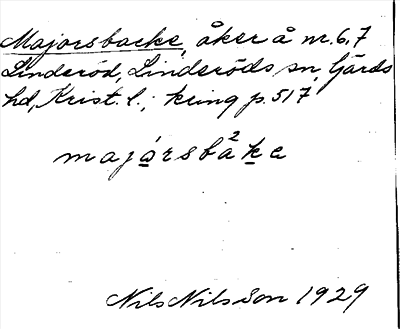 Majorsbacke, åker å nr. 6, 7
Linderöd, Linderöds sn, Gärds
hd, Krist. l.; kring p. 517
majo̲rsbå²k̲e
Nils Nilsson 1929